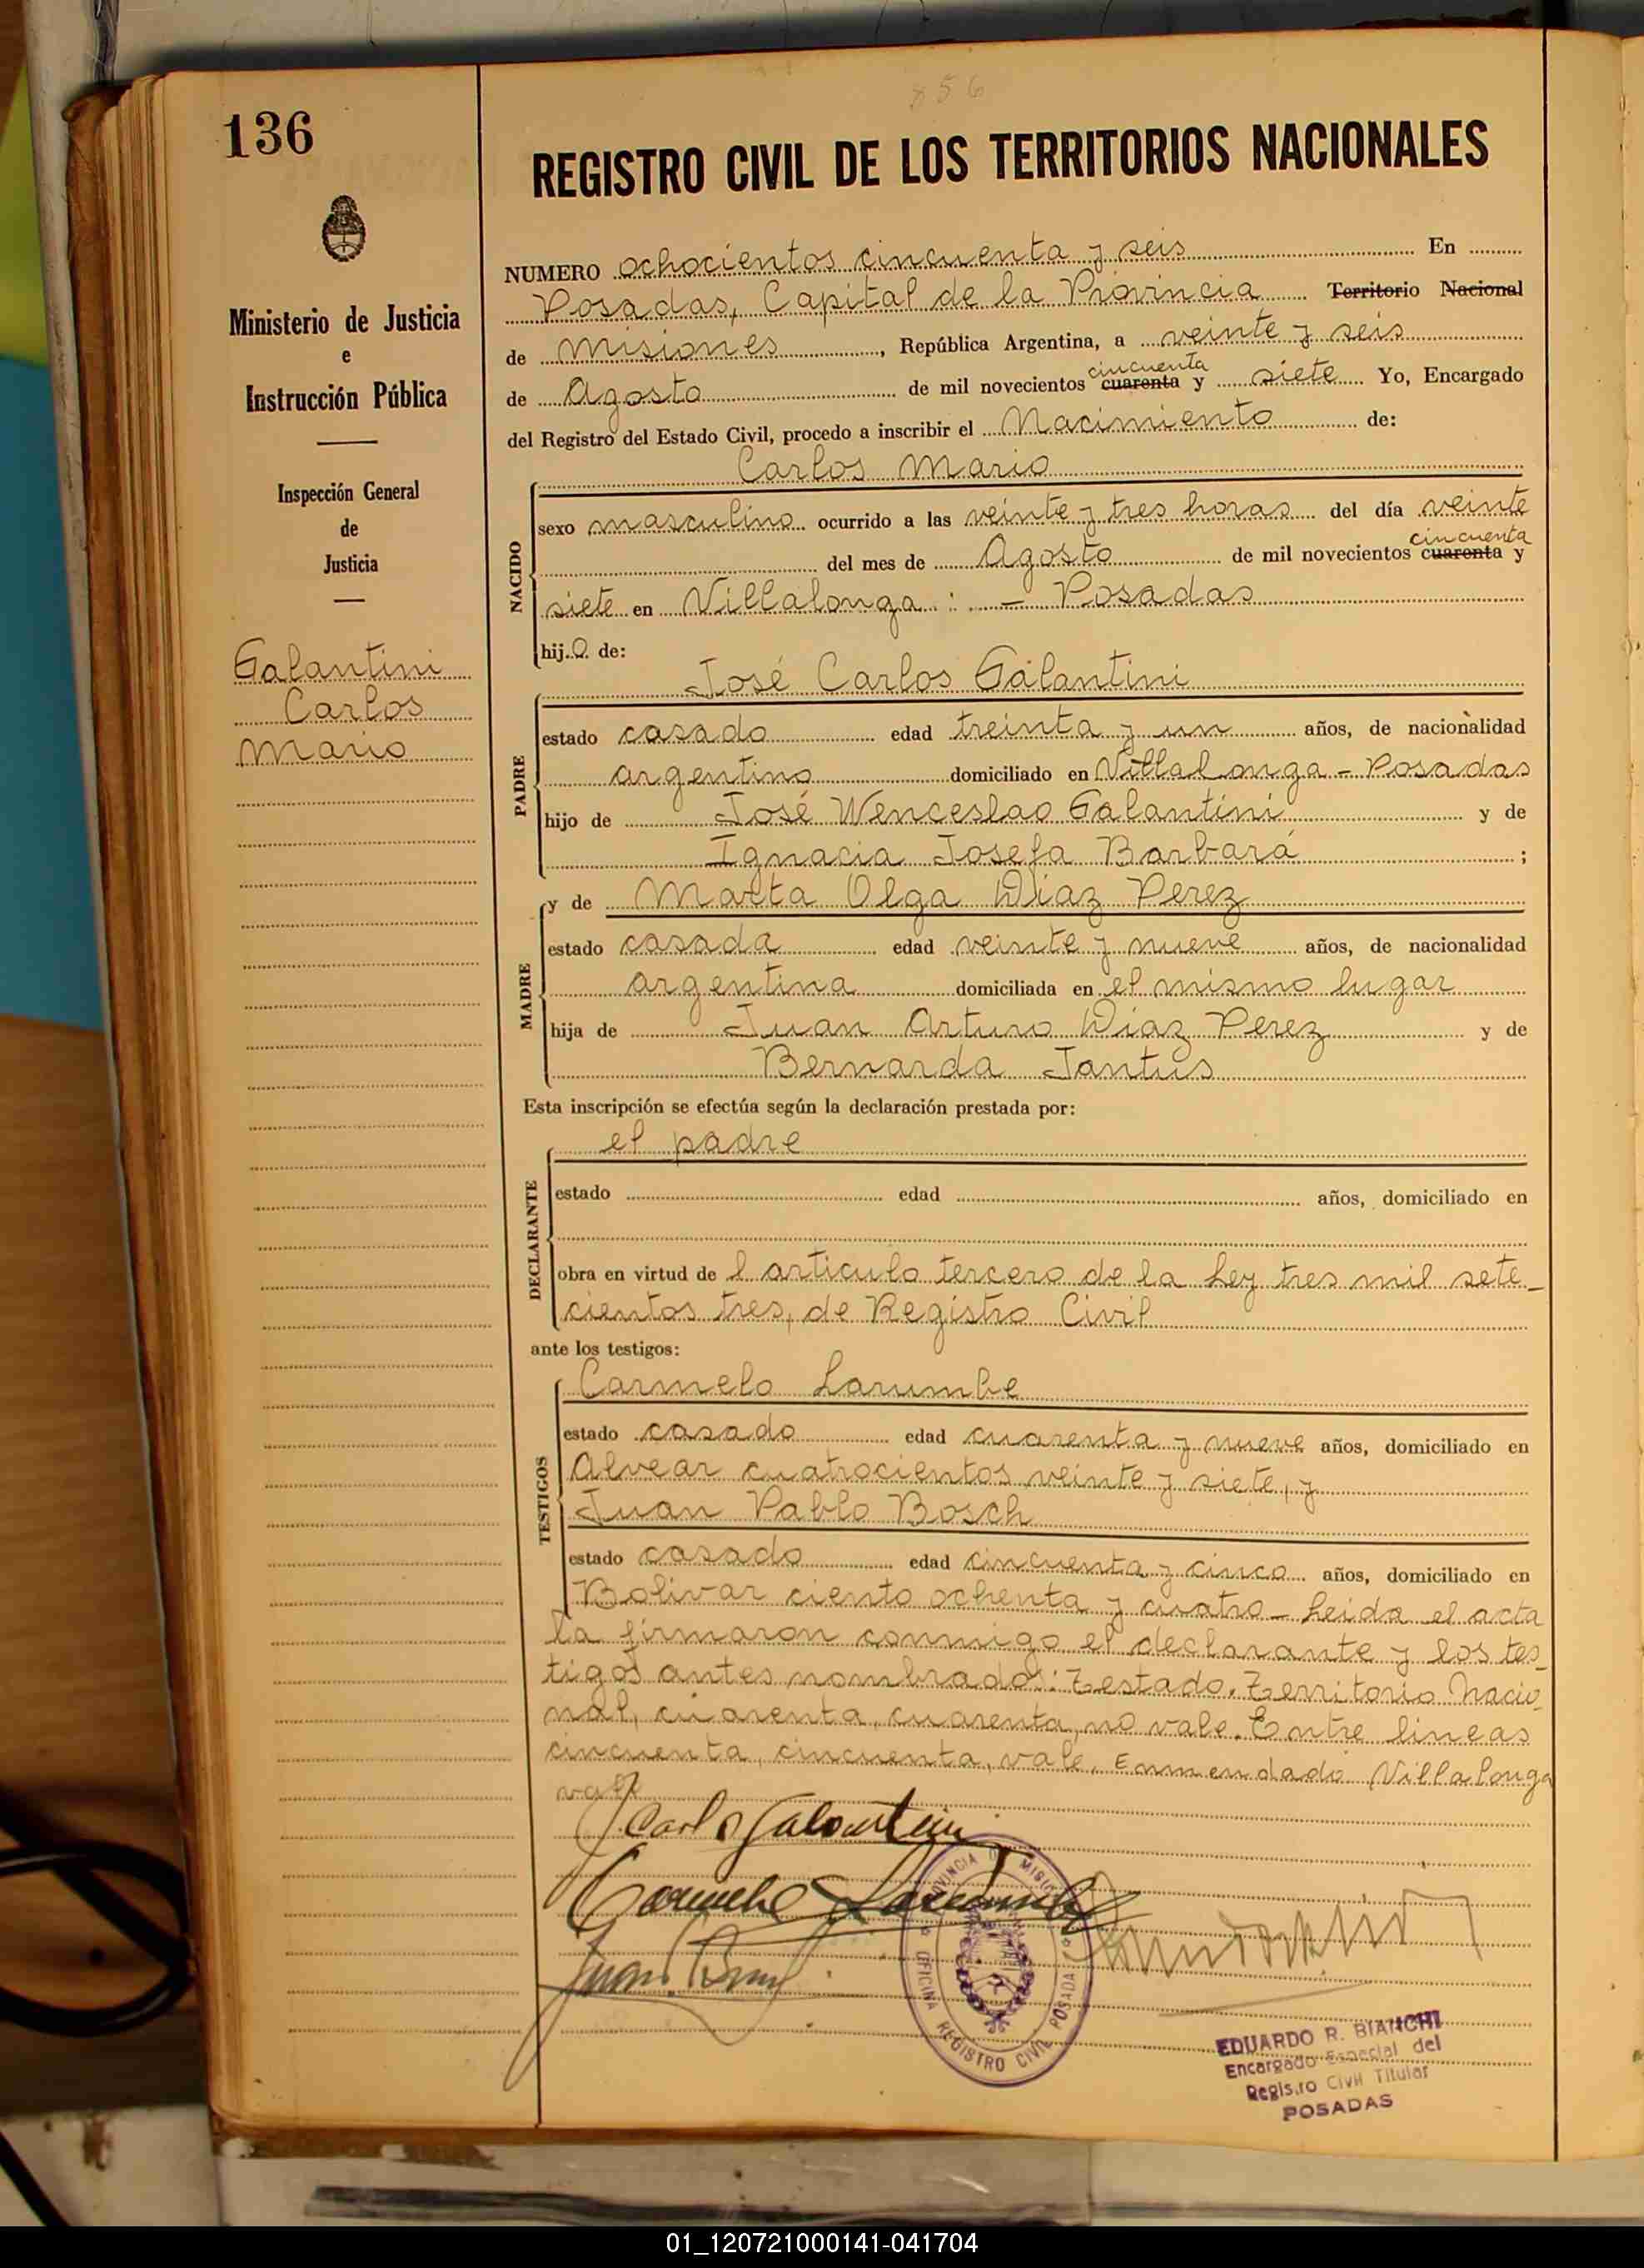 856
136
REGISTRO CIVIL DE LOS TERRITORIOS NACIONALES
Ministerio de Justicia
e
Instrucción Pública
Inspección General
de
Justicia
Galantini
Carlos
Mario
NUMERO ochocientos cincuenta y seis En
Posadas, Capital de la Provincia Territorio Nacional
de Misiones, República Argentina, a veinte y seis
cincuenta
de Agosto de mil novecientos cuarenta y siete Yo, Encargado
del Registro del Estado Civil, procedo a inscribir el Nacimiento de:
Carlos Mario
NACIDO
sexo masculino ocurrido a las veinte y tres horas del día veinte
cincuenta
del mes de Agosto de mil novecientos cuarenta y
siete en Villalonga : . - Posadas
hijo de:
José Carlos Galantini
PADRE
estado casado edad treinta y un años, de nacionalidad
argentino domiciliado en Villalonga - Posadas
hijo de José Wenceslao Galantini y de
Ignacia Josefa Barbará ;
y de Marta Olga Diaz Perez
MADRE
estado casada edad veinte y nueve años, de nacionalidad
argentina domiciliada en el mismo lugar
hija de Juan Arturo Diaz Perez y de
Bernarda Jantus
Esta inscripción se efectúa según la declaración prestada por:
el padre
DECLARANTE
estado edad años, domiciliado en
obra en virtud de l articulo tercero de la Ley tres mil sete-
cientos tres, de Registro Civil
ante los testigos:
Carmelo Larumbe
TESTIGOS
estado casado edad cuarenta y nueve años, domiciliado en
Alvear cuatrocientos veinte y siete, y
Juan Pablo Bosch
estado casado edad cincuenta y cinco años, domiciliado en
Bolivar ciento ochenta y cuatro - Leida el acta
la firmaron conmigo el declarante y los tes-
tigos antes nombrados: Testado. Territorio Nacio-
nal, cuarenta, cuarenta, no vale. Entre lineas
cincuenta, cincuenta, vale. Enmendado Villalonga
vale
J Carlos Galantini
Carmelo Larumbe
PROVINCIA DE MISIONES
OFICINA REGISTRO CIVIL POSADAS
EDUARDO R. BIANCHI
Encargado Especial del
Registro Civil Titular
POSADAS
01_120721000141-041704